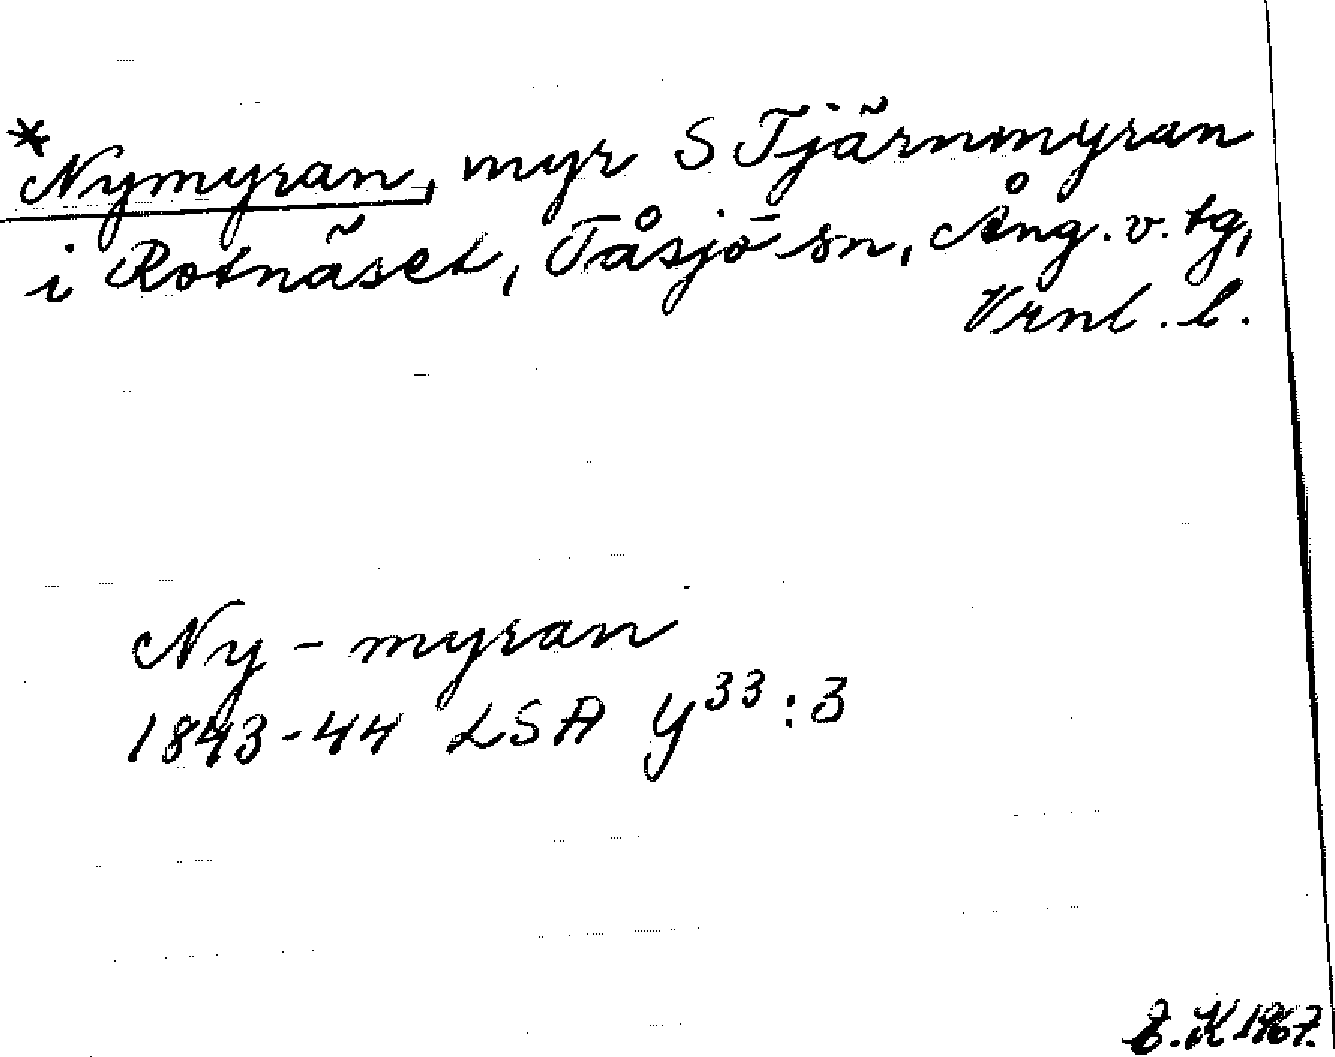 *Nymyran, myr S Tjärnmyran
i Rotnäset, Tåsjö sn, Ång. v. tg,
Vrnl. l.
Ny - myran
1843-44 LSA Y³³:3
E.K 1967.